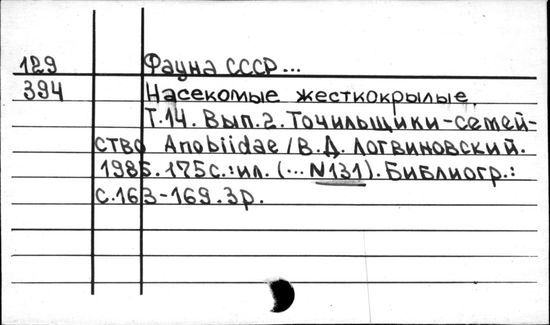 129 Фауна СССР ...
394 Насекомые жесткокрылые.
Т.14. Вып.2. Точильщики-семей-
ство Anobiidae / В.Д. Логвиновский.
1985. 175с.: ил. (... N131). Библиогр.:
с.163-169. 3р.